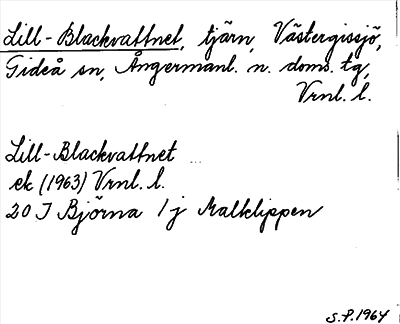 Lill-Blackvattnet, tjärn, Västergissjö,
Gideå sn, Ångermanl. n. doms. tg,
Vrnl. l.
Lill-Blackvattnet
ek (1963) Vrnl. l.
20 I Björna 1 j Malklippen
S.P. 1964